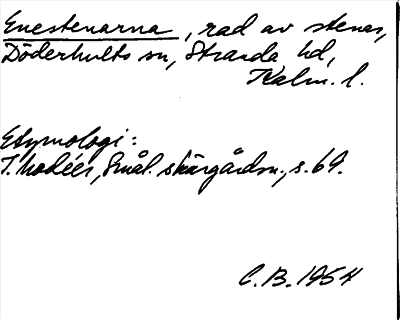 Enestenarna, rad av stenar,
Döderhults sn, Stranda hd,
Kalm. l.
Etymologi:
T. Modéer, Smål. skärgårdsn., s. 69.
C.B. 1954